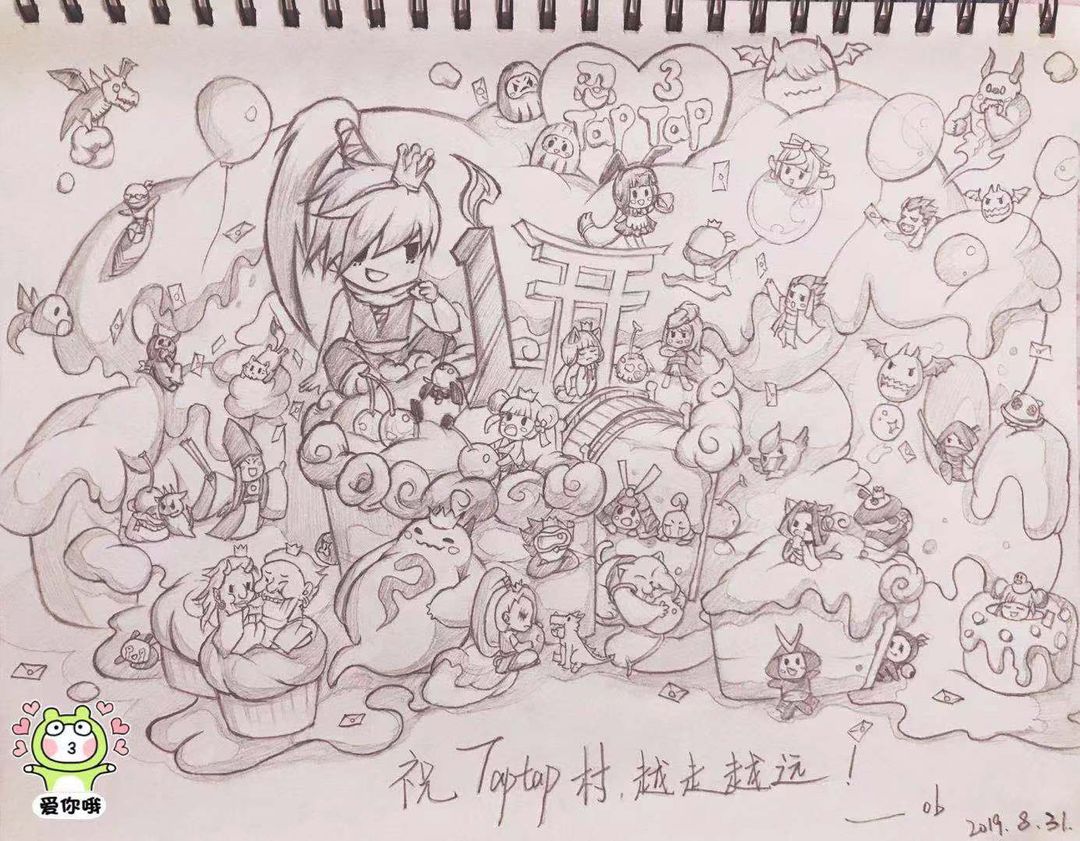 忍3
TapTap
1
祝Taptap村,越走越远!
——ob
2019.8.31.
爱你哦